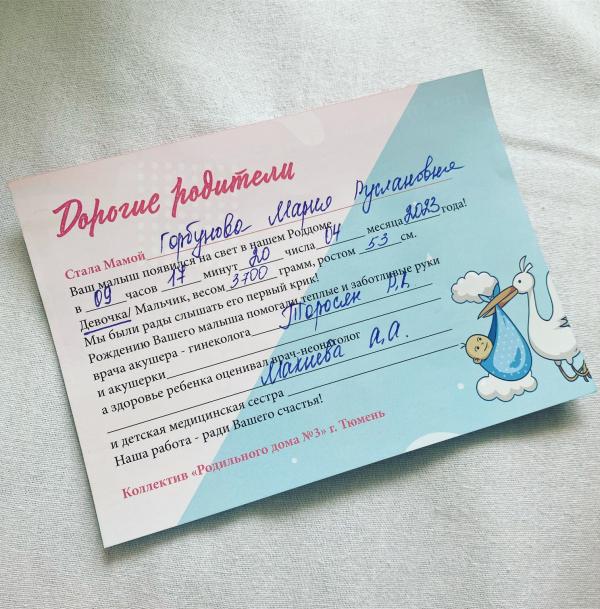 Дорогие родители
Стала Мамой Горбунова Мария Руслановна
Ваш малыш появился на свет в нашем Роддоме
в 09 часов 17 минут 20 числа 04 месяца 2023 года!
Девочка/ Мальчик, весом 3700 грамм, ростом 53 см.
Мы были рады слышать его первый крик!
Рождению Вашего малыша помогали теплые и заботливые руки
врача акушера - гинеколога Торосян
и акушерки
а здоровье ребенка оценивал врач-неонатолог
Махиева А.А.
и детская медицинская сестра
Наша работа - ради Вашего счастья!
Коллектив «Родильного дома №3» г. Тюмень